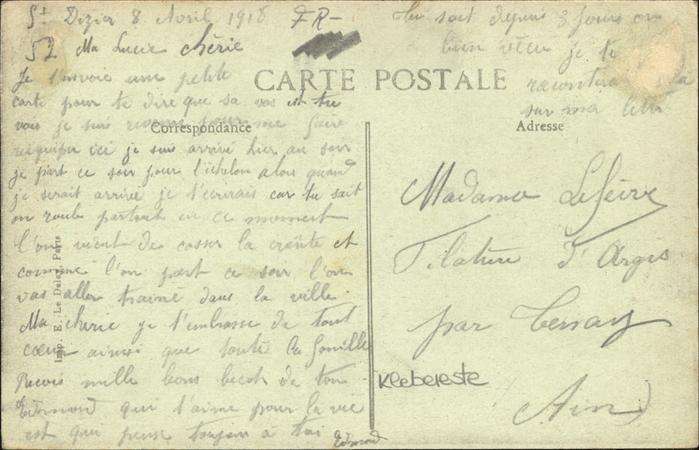 St Dizier 8 Avril 1918 FR-
52 Ma Lucie chérie
Je t'envoie une petite
carte pour te dire que sa vas et tu
vois je suis revenu pour me faire
rééquipé ici je suis arrivé hier au soir
je part ce soir pour l'échelon alors quand
je serait arrivé je t'écrirais car tu sait
on roule partout en ce moment
l'on vient de casser la croûte et
comme l'on part ce soir l'on
vas aller trainé dans la ville
Ma cherie je t'embrasse de tout
cœur ainsi que toute la famille
Recois mille bons becots de ton
Edmond qui t'aime pour la vie
et qui pense toujour à toi
Edmond
Tu sait depuis 3 jours on
bien vécu je te
racontera
sur ma lettre
CARTE POSTALE
Correspondance
Adresse
Madame Lefèvre
Filature d'Argis
par Tenay
Ain
Klebereste
Imp. E. Le Deley, Paris